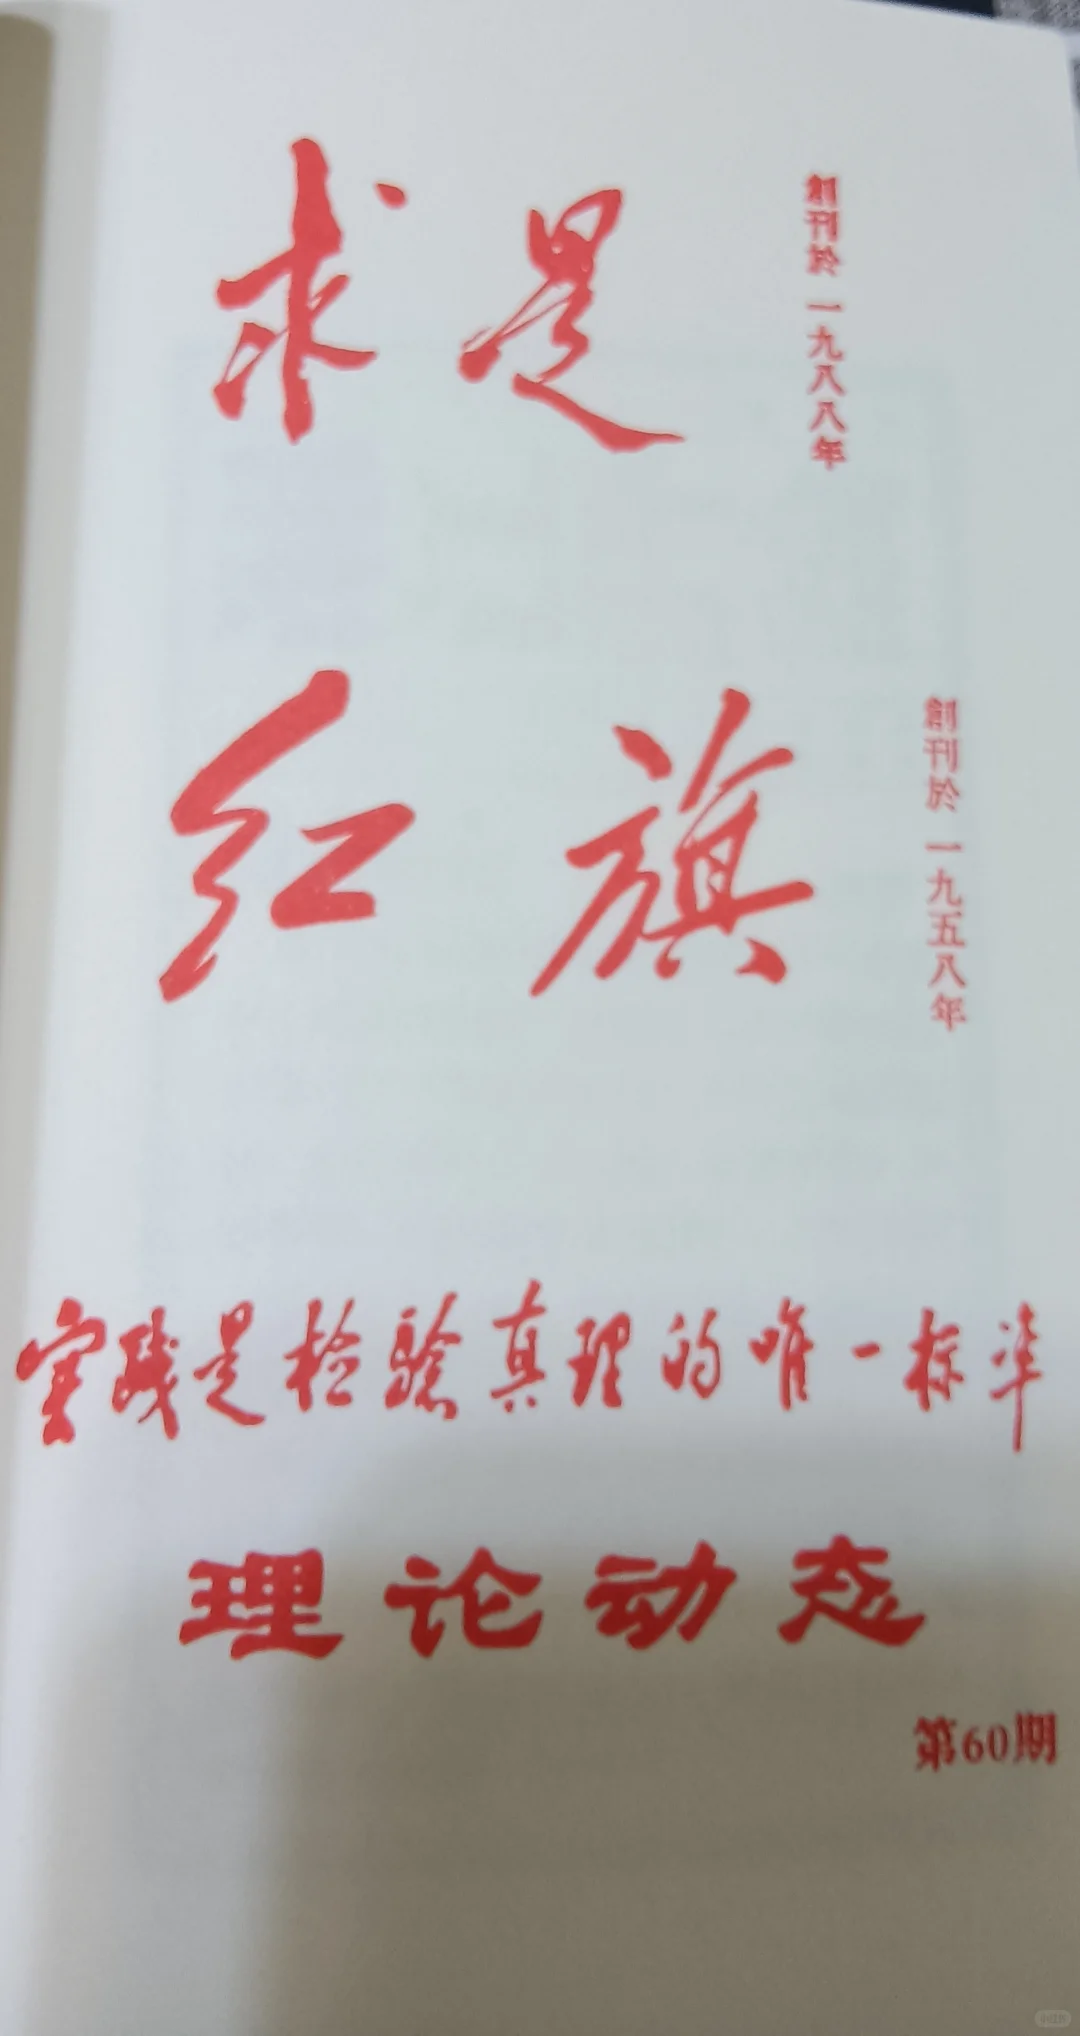 求是
創刊於一九八八年
红旗
創刊於一九五八年
实践是检验真理的唯一标准
理论动态
第60期